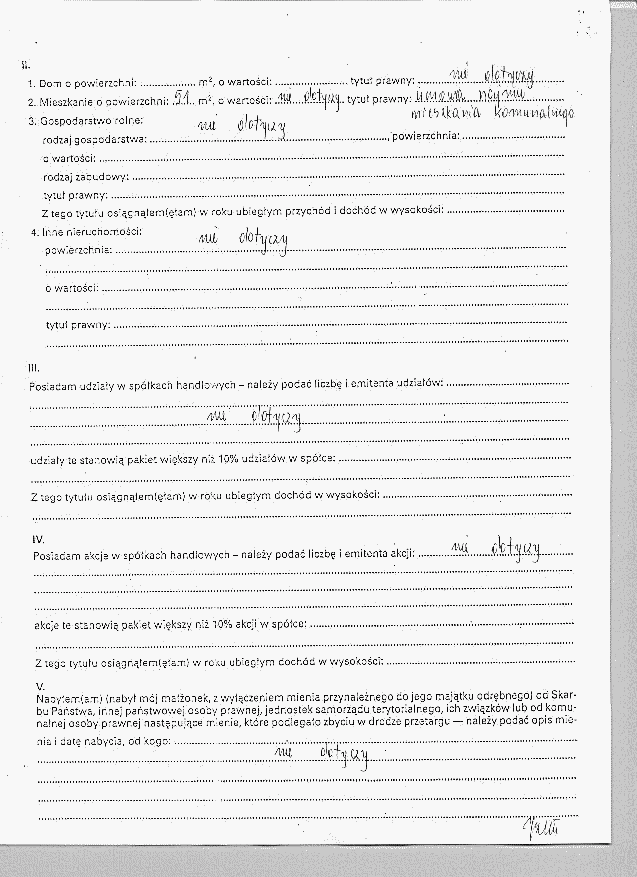 II.
1. Dom o powierzchni: .................. m², o wartości: ........................ tytuł prawny: nie dotyczy
2. Mieszkanie o powierzchni: 51 m², o wartości: nie dotyczy tytuł prawny: umowa najmu
mieszkania komunalnego
3. Gospodarstwo rolne: nie dotyczy
rodzaj gospodarstwa: ........................, powierzchnia: ........................
o wartości: ........................
rodzaj zabudowy: ........................
tytuł prawny: ........................
Z tego tytułu osiągnąłem(ęłam) w roku ubiegłym przychód i dochód w wysokości: ........................
4. Inne nieruchomości: nie dotyczy
powierzchnia: ........................
o wartości: ........................
tytuł prawny: ........................
III.
Posiadam udziały w spółkach handlowych – należy podać liczbę i emitenta udziałów: ........................
nie dotyczy
udziały te stanowią pakiet większy niż 10% udziałów w spółce: ........................
Z tego tytułu osiągnąłem(ęłam) w roku ubiegłym dochód w wysokości: ........................
IV.
Posiadam akcje w spółkach handlowych – należy podać liczbę i emitenta akcji: nie dotyczy
akcje te stanowią pakiet większy niż 10% akcji w spółce: ........................
Z tego tytułu osiągnąłem(ęłam) w roku ubiegłym dochód w wysokości: ........................
V.
Nabyłem(am) (nabył mój małżonek, z wyłączeniem mienia przynależnego do jego majątku odrębnego) od Skar-
bu Państwa, innej państwowej osoby prawnej, jednostek samorządu terytorialnego, ich związków lub od komu-
nalnej osoby prawnej następujące mienie, które podlegało zbyciu w drodze przetargu — należy podać opis mie-
nia i datę nabycia, od kogo: ........................
nie dotyczy